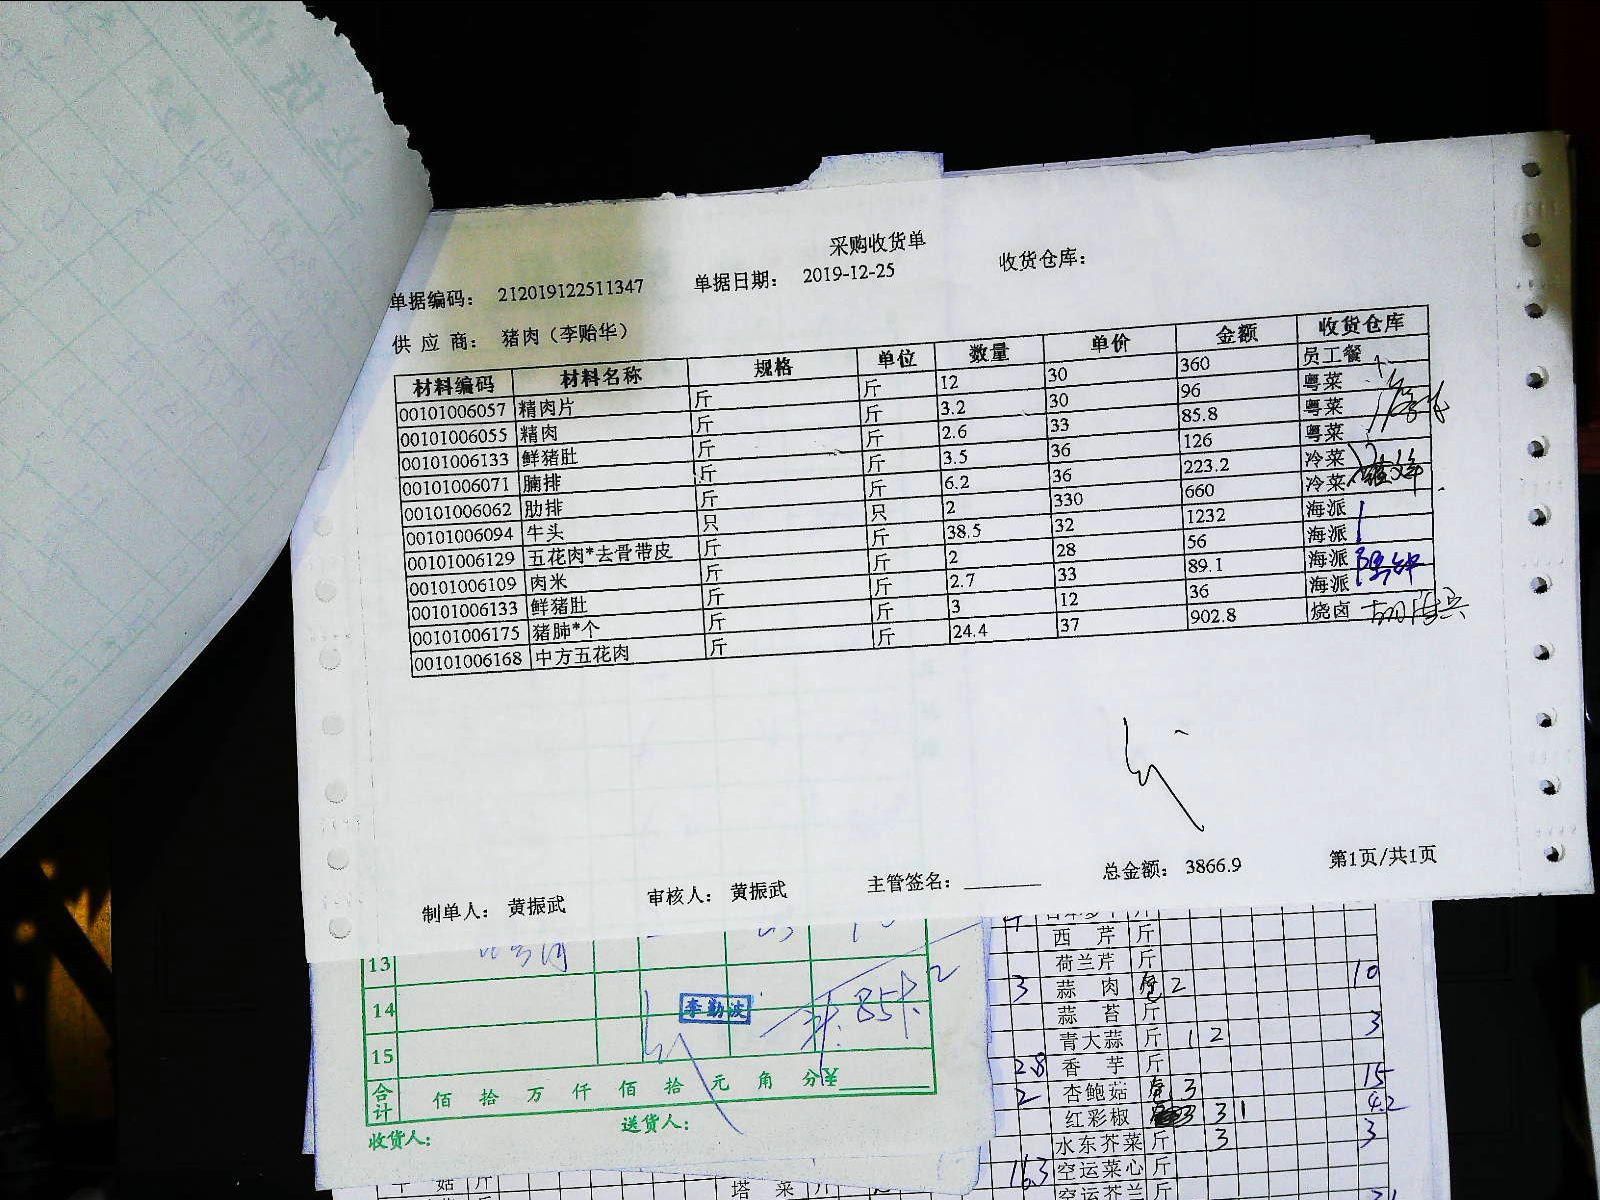 采购收货单
单据编码： 212019122511347 单据日期： 2019-12-25 收货仓库：
供 应 商： 猪肉（李贻华）
材料编码 材料名称 规格 单位 数量 单价 金额 收货仓库
00101006057 精肉片 斤 斤 12 30 360 员工餐
00101006055 精肉 斤 斤 3.2 30 96 粤菜
00101006133 鲜猪肚 斤 斤 2.6 33 85.8 粤菜
00101006071 腩排 斤 斤 3.5 36 126 粤菜
00101006062 肋排 斤 斤 6.2 36 223.2 冷菜
00101006094 牛头 只 只 2 330 660 冷菜
00101006129 五花肉*去骨带皮 斤 斤 38.5 32 1232 海派
00101006109 肉米 斤 斤 2 28 56 海派
00101006133 鲜猪肚 斤 斤 2.7 33 89.1 海派
00101006175 猪肺*个 斤 斤 3 12 36 海派
00101006168 中方五花肉 斤 斤 24.4 37 902.8 烧卤
制单人： 黄振武 审核人： 黄振武 主管签名： 总金额： 3866.9 第1页/共1页
13
14 李勤波
15
合计 佰 拾 万 仟 佰 拾 元 角 分¥
收货人： 送货人：
西 芹 斤
荷兰芹 斤
3 蒜 肉 2 10
蒜 苔 斤
青大蒜 斤 1 2 3
2.8 香 芋 斤
2 杏鲍菇 3 15
红彩椒 3 1 4.2
水东芥菜 斤 3 3
16.3 空运菜心 斤
空运芥兰 斤
菇 斤 塔 菜 斤